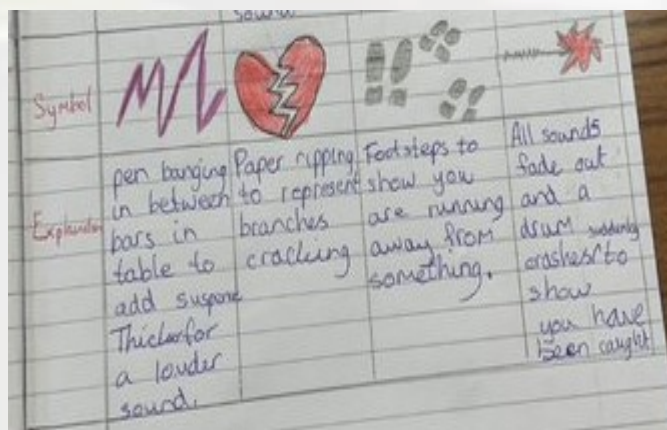 sound
Symbol
Explanation
pen banging
in between
bars in
table to
add suspense
Thicker for
a louder
sound.
Paper ripping
to represent
branches
cracking
Footsteps to
show you
are running
away from
something.
All sounds
fade out
and a
drum suddenly
crashes to
show
you have
been caught